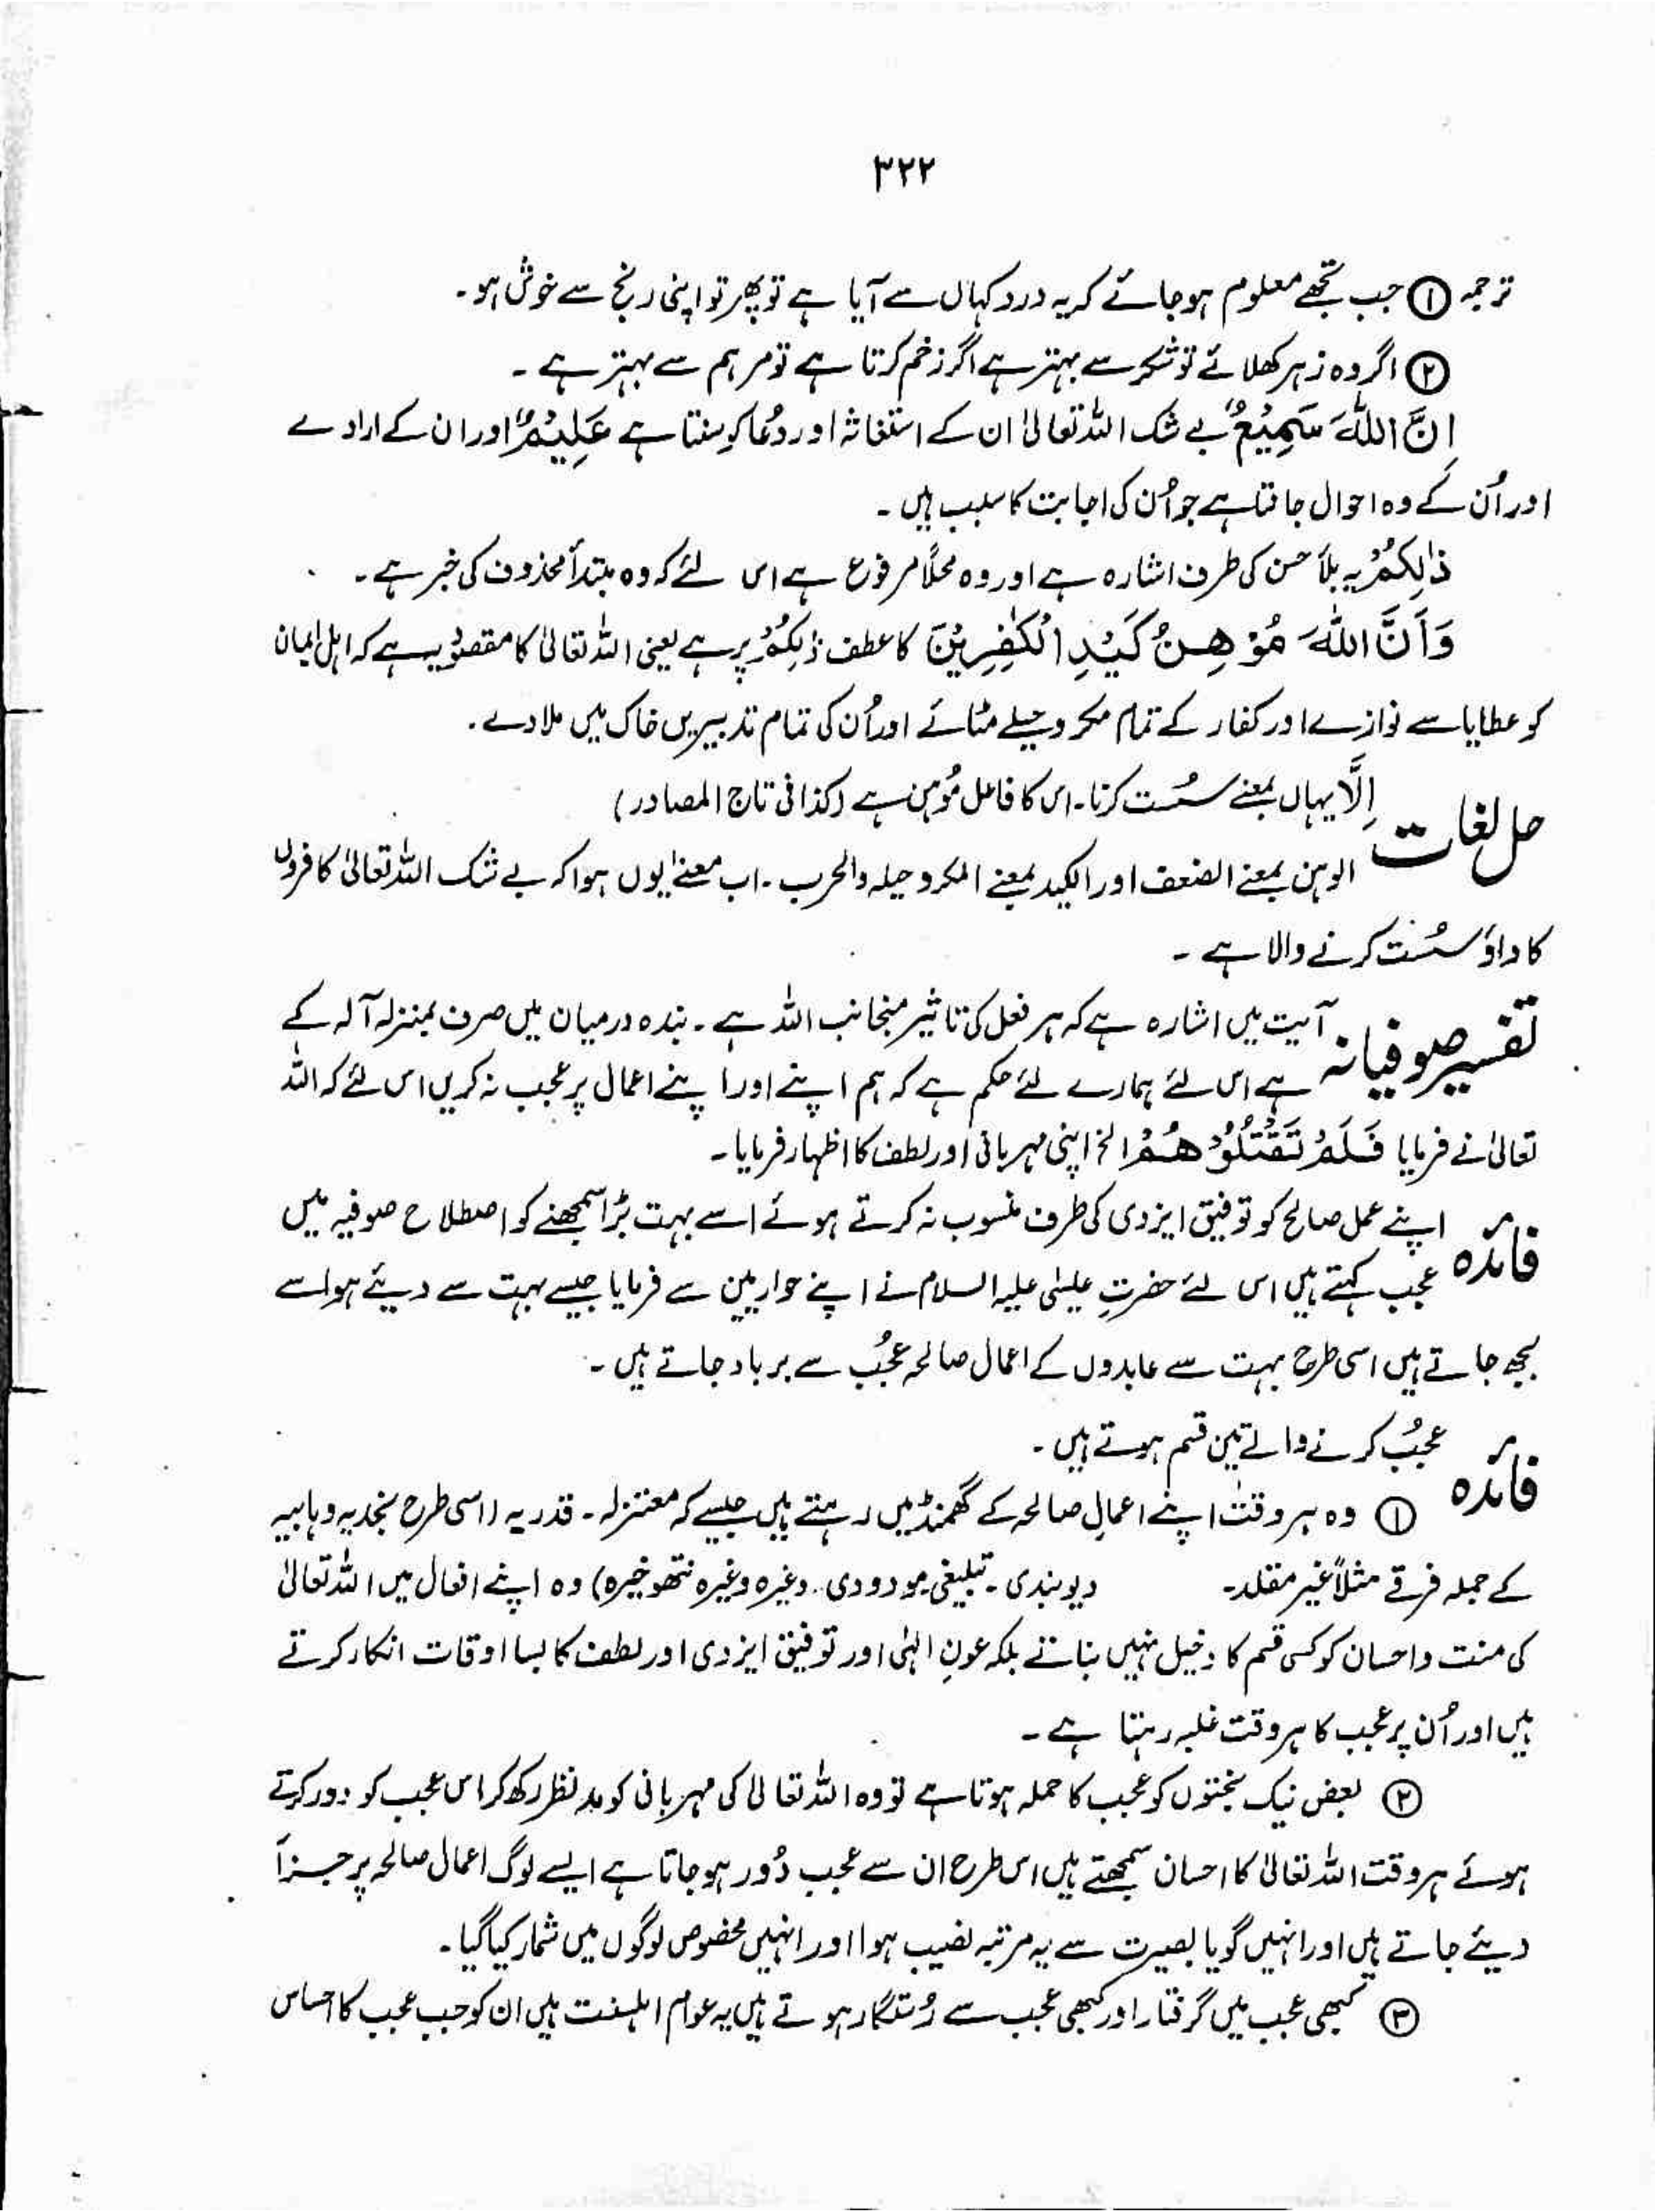 ۳۲۲
ترجمہ ① جب تجھے معلوم ہوجائے کہ یہ درد کہاں سے آیا ہے تو پھر تو اپنی رنج سے خوش ہو۔
② اگر وہ زہر کھلائے تو شکر سے بہتر ہے اگر زخم کرتا ہے تو مرہم سے بہتر ہے ۔
اِنَّ اللّٰہَ سَمِیْعٌ بے شک اللہ تعالیٰ ان کے استغاثہ اور دُعا کو سنتا ہے عَلِیْمٌ اور ان کے ارادے
اور اُن کے وہ احوال جانتا ہے جو اُن کی اجابت کا سبب ہیں ۔
ذٰلِکُمْ یہ بلأ حسن کی طرف اشارہ ہے اور وہ محلًا مرفوع ہے اس لئے کہ وہ مبتدأ محذوف کی خبر ہے ۔
وَاَنَّ اللّٰہَ مُوْھِنُ کَیْدِ الْکٰفِرِیْنَ کا عطف ذٰلِکُمْ پر ہے یعنی اللہ تعالیٰ کا مقصود یہ ہے کہ اہل ایمان
کو عطایا سے نوازے اور کفار کے تمام مکر و حیلے مٹائے اور اُن کی تمام تدبیریں خاک میں ملا دے ۔
حل لغات اِلَّا یہاں بمعنے سُست کرنا ۔ اس کا فاعل مُوہن ہے (کذا فی تاج المصادر)
الوہن بمعنے الضعف اور الکید بمعنے المکر و حیلہ والحرب ۔ اب معنےٰ یوں ہوا کہ بے شک اللہ تعالیٰ کافروں
کا داؤ سُست کرنے والا ہے ۔
تفسیر صوفیانہ آیت میں اشارہ ہے کہ ہر فعل کی تاثیر منجانب اللہ ہے ۔ بندہ درمیان میں صرف بمنزلہ آلہ کے
ہے اس لئے ہمارے لئے حکم ہے کہ ہم اپنے اور اپنے اعمال پر عجب نہ کریں اس لئے کہ اللہ
تعالیٰ نے فرمایا فَلَمْ تَقْتُلُوْھُمْ الخ اپنی مہربانی اور لطف کا اظہار فرمایا ۔
فائدہ اپنے عمل صالح کو توفیق ایزدی کی طرف منسوب نہ کرتے ہوئے اسے بہت بڑا سمجھنے کو اصطلاح صوفیہ میں
عجب کہتے ہیں اس لئے حضرتِ عیسٰی علیہ السلام نے اپنے حوارین سے فرمایا جیسے بہت سے دیئے ہوا سے
بجھ جاتے ہیں اسی طرح بہت سے عابدوں کے اعمال صالحہ عجُب سے برباد جاتے ہیں ۔
فائدہ عجُب کرنے والے تین قسم ہوتے ہیں ۔
① وہ ہر وقت اپنے اعمالِ صالحہ کے گھمنڈ میں رہتے ہیں جیسے کہ معتزلہ ۔ قدریہ (اسی طرح نجدیہ وہابیہ
کے جملہ فرقے مثلاً غیر مقلد ۔ دیوبندی ۔ تبلیغی مودودی ۔ وغیرہ وغیرہ نتھو خیرہ) وہ اپنے افعال میں اللہ تعالیٰ
کی منت و احسان کو کسی قسم کا دخیل نہیں بناتے بلکہ عونِ الہٰی اور توفیق ایزدی اور لطف کا بسا اوقات انکار کرتے
ہیں اور اُن پر عجب کا ہر وقت غلبہ رہتا ہے ۔
② بعض نیک بختوں کو عجب کا حملہ ہوتا ہے تو وہ اللہ تعالیٰ کی مہربانی کو مدِ نظر رکھ کر اس عجب کو دور کرتے
ہوئے ہر وقت اللہ تعالیٰ کا احسان سمجھتے ہیں اس طرح ان سے عجب دُور ہوجاتا ہے ایسے لوگ اعمال صالحہ پر جزأ
دیئے جاتے ہیں اور انہیں گویا بصیرت سے یہ مرتبہ نصیب ہوا اور انہیں مخصوص لوگوں میں شمار کیا گیا ۔
③ کبھی عجب میں گرفتار اور کبھی عجب سے رُستگار ہوتے ہیں یہ عوام اہلسنت ہیں ان کو جب عجب کا احساس